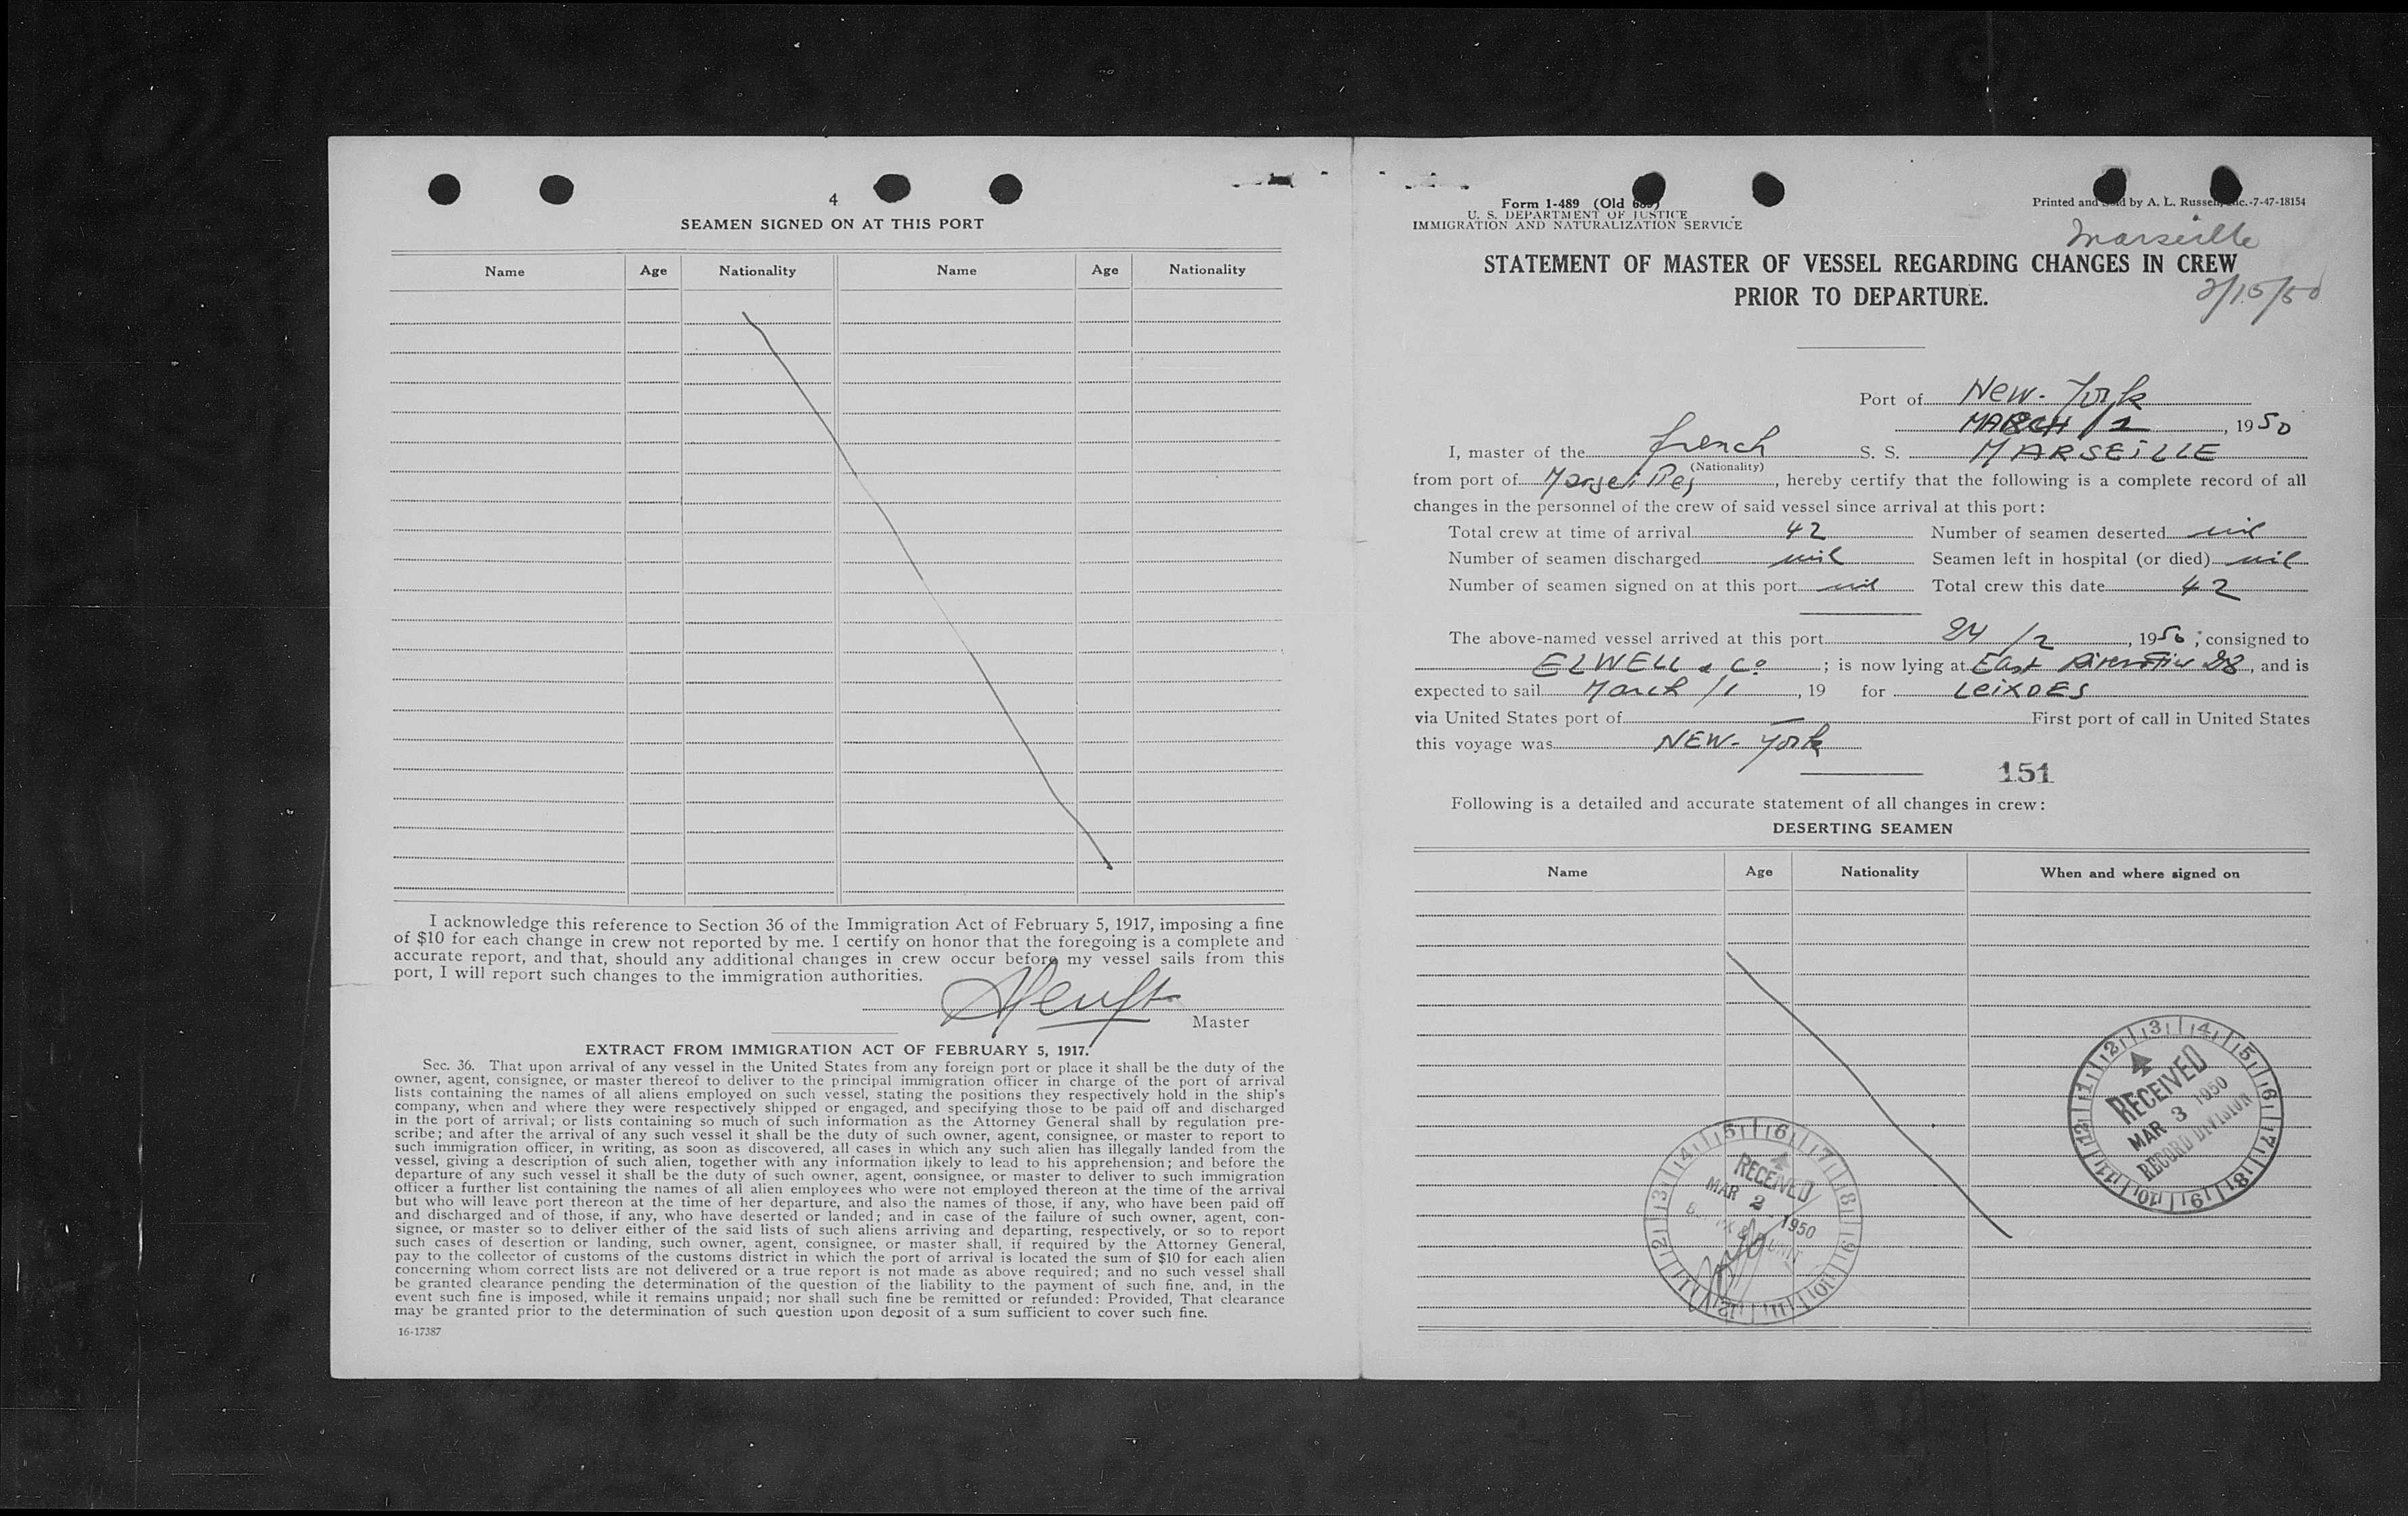 4
SEAMEN SIGNED ON AT THIS PORT
Name Age Nationality Name Age Nationality
I acknowledge this reference to Section 36 of the Immigration Act of February 5, 1917, imposing a fine
of $10 for each change in crew not reported by me. I certify on honor that the foregoing is a complete and
accurate report, and that, should any additional changes in crew occur before my vessel sails from this
port, I will report such changes to the immigration authorities.
Master
EXTRACT FROM IMMIGRATION ACT OF FEBRUARY 5, 1917.
Sec. 36. That upon arrival of any vessel in the United States from any foreign port or place it shall be the duty of the
owner, agent, consignee, or master thereof to deliver to the principal immigration officer in charge of the port of arrival
lists containing the names of all aliens employed on such vessel, stating the positions they respectively hold in the ship's
company, when and where they were respectively shipped or engaged, and specifying those to be paid off and discharged
in the port of arrival; or lists containing so much of such information as the Attorney General shall by regulation pre-
scribe; and after the arrival of any such vessel it shall be the duty of such owner, agent, consignee, or master to report to
such immigration officer, in writing, as soon as discovered, all cases in which any such alien has illegally landed from the
vessel, giving a description of such alien, together with any information likely to lead to his apprehension; and before the
departure of any such vessel it shall be the duty of such owner, agent, consignee, or master to deliver to such immigration
officer a further list containing the names of all alien employees who were not employed thereon at the time of the arrival
but who will leave port thereon at the time of her departure, and also the names of those, if any, who have been paid off
and discharged and of those, if any, who have deserted or landed; and in case of the failure of such owner, agent, con-
signee, or master so to deliver either of the said lists of such aliens arriving and departing, respectively, or so to report
such cases of desertion or landing, such owner, agent, consignee, or master shall, if required by the Attorney General,
pay to the collector of customs of the customs district in which the port of arrival is located the sum of $10 for each alien
concerning whom correct lists are not delivered or a true report is not made as above required; and no such vessel shall
be granted clearance pending the determination of the question of the liability to the payment of such fine, and, in the
event such fine is imposed, while it remains unpaid; nor shall such fine be remitted or refunded: Provided, That clearance
may be granted prior to the determination of such question upon deposit of a sum sufficient to cover such fine.
16-17387
Form 1-489 (Old 689)
U. S. DEPARTMENT OF JUSTICE
IMMIGRATION AND NATURALIZATION SERVICE
Printed and Sold by A. L. Russell, Inc.-7-47-18154
Marseille
STATEMENT OF MASTER OF VESSEL REGARDING CHANGES IN CREW
PRIOR TO DEPARTURE.
2/15/50
Port of New-York
MARCH / 2, 1950
I, master of the french S. S. MARSEILLE
(Nationality)
from port of Marseilles, hereby certify that the following is a complete record of all
changes in the personnel of the crew of said vessel since arrival at this port:
Total crew at time of arrival 42 Number of seamen deserted nil
Number of seamen discharged nil Seamen left in hospital (or died) nil
Number of seamen signed on at this port nil Total crew this date 42
The above-named vessel arrived at this port 24/2, 1950; consigned to
ELWELL & Co; is now lying at East River, and is
expected to sail March /1, 19 for LEIXOES
via United States port of — First port of call in United States
this voyage was NEW-York
151
Following is a detailed and accurate statement of all changes in crew:
DESERTING SEAMEN
Name Age Nationality When and where signed on
RECEIVED
MAR 3 1950
RECORD DIVISION
RECEIVED
MAR 2 1950